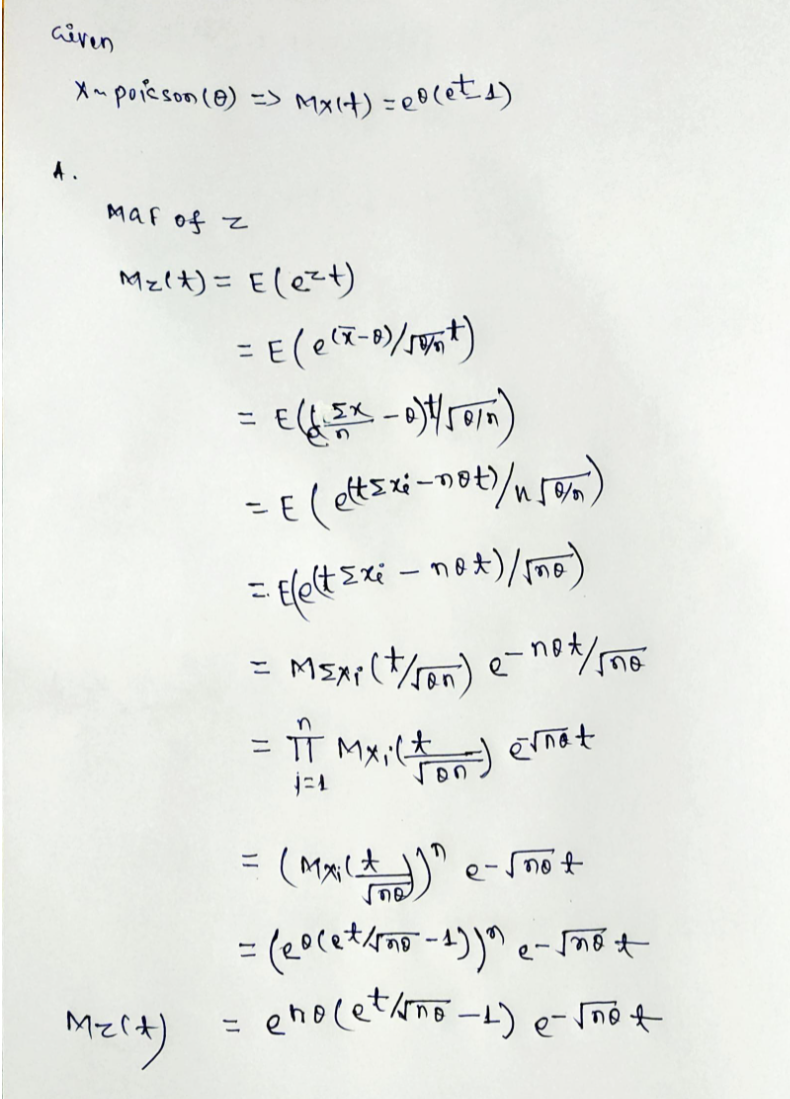 Given
X ~ poicson(θ) => Mx(t) = e^θ(e^t-1)
A.
MGF of z
Mz(t) = E(e^zt)
= E(e^(x̄-θ)/√θ/n t)
= E(e^(Σx/n - θ)t/√θ/n)
= E(e^(tΣxi - nθt)/n√θ/n)
= E(e^(tΣxi - nθt)/√nθ)
= MΣxi(t/√θn) e^-nθt/√nθ
= n∏j=1 Mxi(t/√θn) e^-√nθ t
= (Mxi(t/√nθ))^n e^-√nθ t
= (e^θ(e^t/√nθ - 1))^n e^-√nθ t
Mz(t) = e^nθ(e^t/√nθ - 1) e^-√nθ t